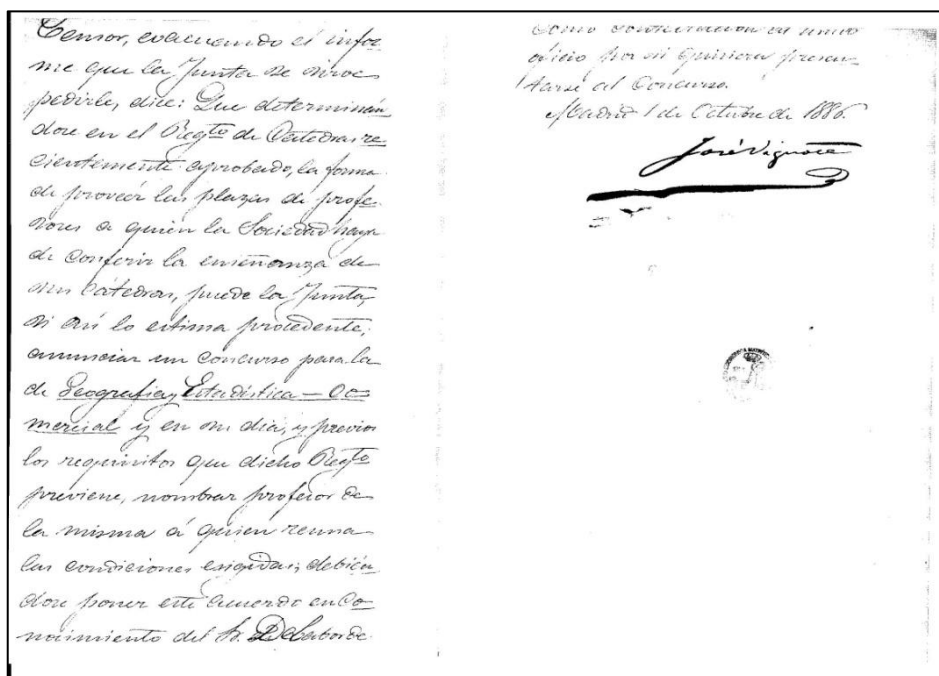 Censor, evacuando el infor
me que la Junta se sirve
pedirle, dice: Que determinán
dose en el Regto de Cátedras re
cientemente aprobado, la forma
de proveer las plazas de profe
sores a quien la Sociedad haya
de conferir la enseñanza de
sus Cátedras, puede la Junta,
si así lo estima procedente,
anunciar un Concurso para la
de Geografia y Estadística - Co
mercial y en su dia, y previos
los requisitos que dicho Regto
previene, nombrar profesor de
la misma á quien reuna
las condiciones exigidas; debién
dose poner este acuerdo en Co
nocimiento del Sr. Delaborde
como contestacion a su
oficio por si quisiera presen
tarse al Concurso.
Madrid 1 de Octubre de 1886.
José Vignote